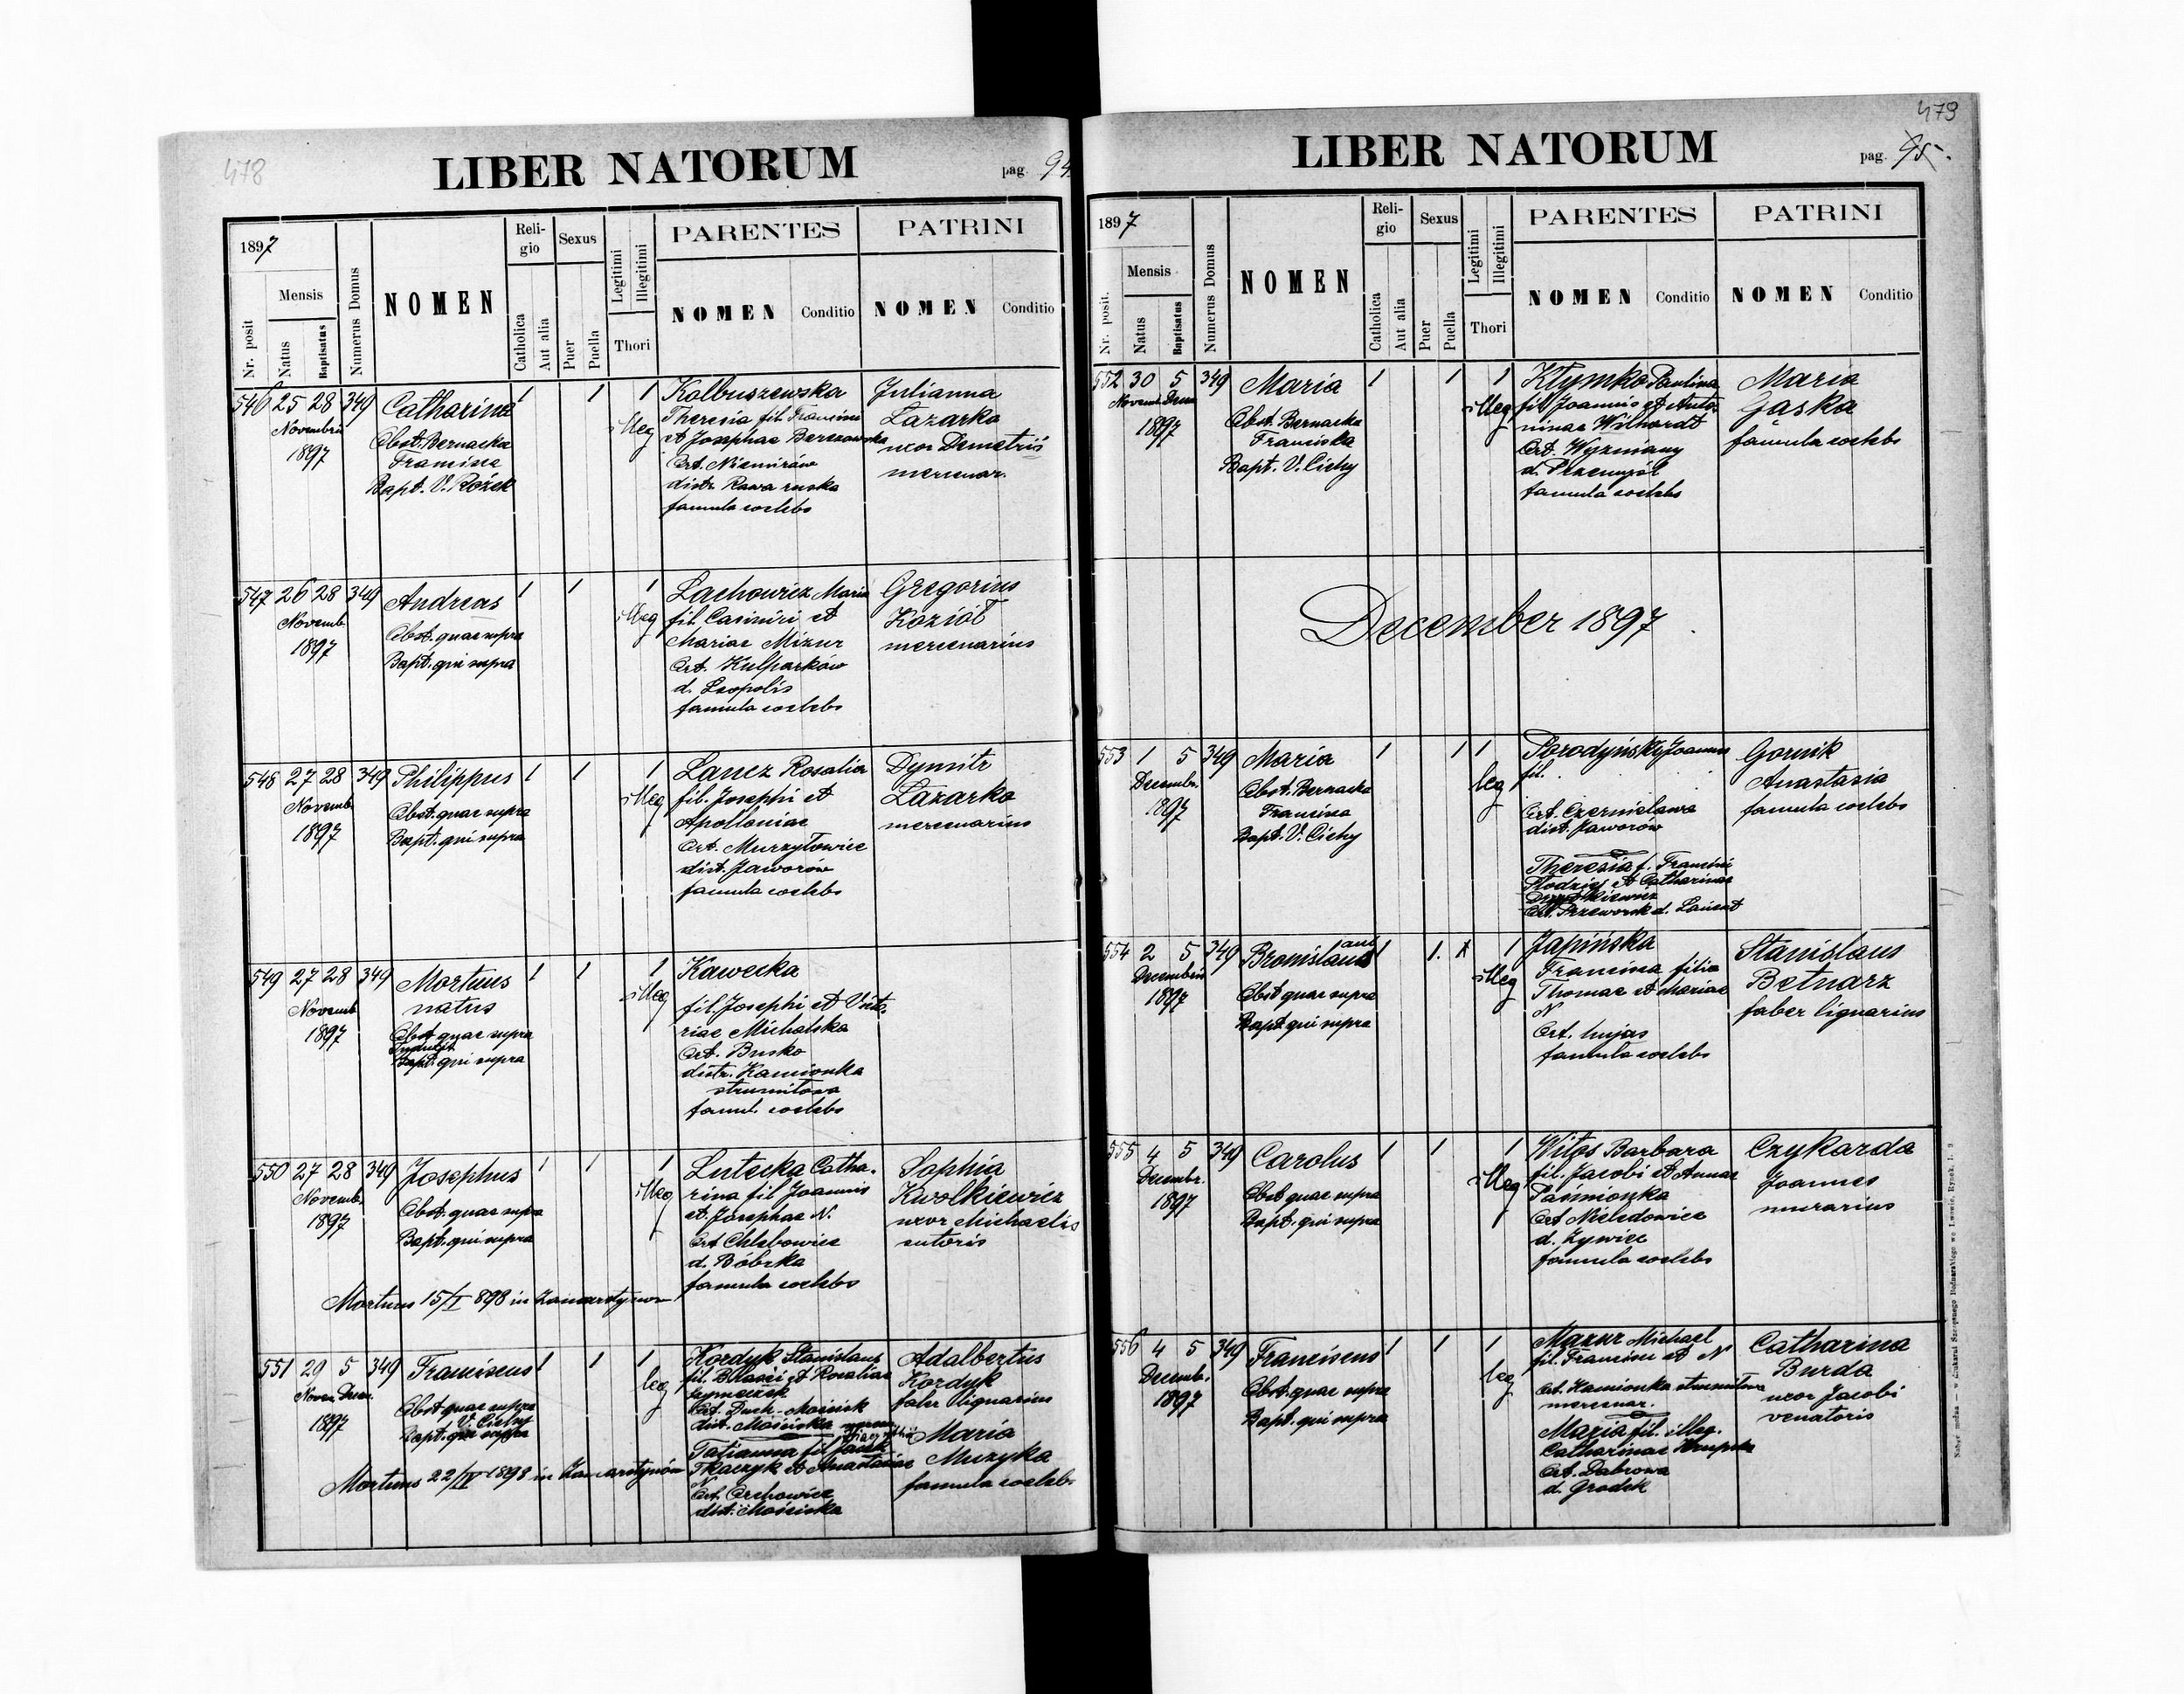 478
LIBER NATORUM
pag. 94
1897
Nr. posit
Mensis
Natus
Baptisatus
Numerus Domus
NOMEN
Reli-
gio
Catholica
Aut alia
Sexus
Puer
Puella
Legitimi
Illegitimi
Thori
PARENTES
NOMEN
Conditio
PATRINI
NOMEN
Conditio
546 25 28 349
Novembris
1897
Catharina
Obst. Bernacka
Francisca
Bapt. V. Rożek
1 1 1
illeg
Kolbuszewska
Theresia fil. Francisci
et Josephae Berezowska
Ort. Niemirów
distr. Rawa ruska
famula coelebs
Julianna
Łazarko
uxor Demetrii
mercenar.
547 26 28 349
Novemb.
1897
Andreas
Obst. quae supra
Bapt. qui supra
1 1 1
illeg
Lachowicz Maria
fil. Casimiri et
Mariae Mizur
Ort. Kulparków
d. Leopolis
famula coelebs
Gregorius
Kozioł
mercenarius
548 27 28 349
Novemb.
1897
Philippus
Obst. quae supra
Bapt. qui supra
1 1 1
illeg
Lanez Rosalia
fil. Josephi et
Apolloniae
Ort. Murzyłowice
dist. Jaworów
famula coelebs
Dymitr
Łazarko
mercenarius
549 27 28 349
Novemb.
1897
Mortuus
natus
Obst. quae supra
Bapt. qui supra
1 1 1
illeg
Kawecka
fil. Josephi et Victo-
riae Michalska
Ort. Busko
distr. Kamionka
strumiłowa
famul. coelebs
550 27 28 349
Novemb.
1897
Josephus
Obst. quae supra
Bapt. qui supra
1 1 1
illeg
Lutecka Catha-
rina fil Joannis
et Josephae N.
Ort Chlebowice
d. Bóbrka
famula coelebs
Sophia
Kwolkiewicz
uxor Michaelis
sutoris
Mortuus 15/I 898 in Zamarstynow
551 29 5 349
Novem. Decem.
1897
Franciscus
Obst quae supra
V. Cichy
Bapt. qui supra
1 1 1
leg
Kordyk Stanislaus
fil. Blasii et Rosaliae
Szymczak
Ort. Mościsk
dist. Mościska
Tatianna fil
Tkaczyk et Anastasiae
N
Ort. Orchowice
dist. Mościska
Adalbertus
Kordyk
faber lignarius
Maria
Muzyka
famula coeleb.
Mortuus 22/IV 1898 in Zamarstynów
479
LIBER NATORUM
pag. 95.
1897
Nr. posit.
Mensis
Natus
Baptisatus
Numerus Domus
NOMEN
Reli-
gio
Catholica
Aut alia
Sexus
Puer
Puella
Legitimi
Illegitimi
Thori
PARENTES
NOMEN
Conditio
PATRINI
NOMEN
Conditio
552 30 5 349
Novemb. Decem
1897
Maria
Obst. Bernacka
Francisca
Bapt. V. Cichy
1 1 1
illeg
Kłymko Paulina
fil Joannis et Anto-
ninae Wilhardt
Ort. Wyzniany
d. Przemyśl
famula coelebs
Maria
Gaska
famula coelebs
December 1897
553 1 5 349
Decembr.
1897
Maria
Obst. Bernacka
Francisca
Bapt. V. Cichy
1 1 1
leg
Joannes
fil.
Ort. Czernielawa
dist. Jaworów
Theresia f. Francisci
et Catharinae
Ort. Przeworsk d. Łańcut
Gornik
Anastasia
famula coelebs
554 2 5 349
Decembris
1897
Bronislaus
Obst quae supra
Bapt qui supra
1 1. x 1
illeg
Japińska
Francisca filia
Thomae et Mariae
N
Ort. hujas
famula coelebs
Stanislaus
Betnarz
faber lignarius
555 4 5 349
Decembr.
1897
Carolus
Obst quae supra
Bapt. qui supra
1 1 1
illeg
Witos Barbara
fil. Jacobi et Annae
Paśmionka
Ort Mieledowice
d. Żywiec
famula coelebs
Czykarda
Joannes
murarius
556 4 5 349
Decemb.
1897
Franciscus
Obst. quae supra
Bapt. qui supra
1 1 1
leg
Mazur Michael
fil. Francisci et N
Ort. Kamionka strumiłowa
mercenar.
Maria fil. illeg.
Catharinae Krupska
Ort. Dabrowa
d. Grodek
Catharina
Burda
uxor Jacobi
venatoris